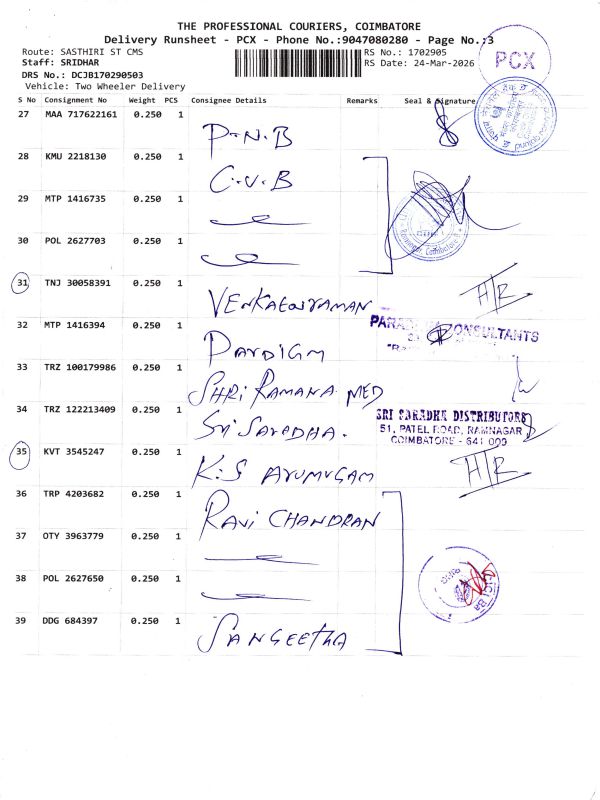 THE PROFESSIONAL COURIERS, COIMBATORE
Delivery Runsheet - PCX - Phone No.:9047080280 - Page No.:3
Route: SASTHIRI ST CMS RS No.: 1702905
Staff: SRIDHAR RS Date: 24-Mar-2026
DRS No.: DCJB170290503
Vehicle: Two Wheeler Delivery
PCX
S No Consignment No Weight PCS Consignee Details Remarks Seal & Signature
27 MAA 717622161 0.250 1 P.N.B
28 KMU 2218130 0.250 1 C.V.B
29 MTP 1416735 0.250 1
30 POL 2627703 0.250 1
31 TNJ 30058391 0.250 1 VENKATOSRAMAN H/R
32 MTP 1416394 0.250 1 PARDIGM
CONSULTANTS
33 TRZ 100179986 0.250 1 SHRI RAMANA MED
34 TRZ 122213409 0.250 1 Sri Saradha.
SRI SARADHA DISTRIBUTORS
51, PATEL ROAD, RAMNAGAR
COIMBATORE - 641 009
35 KVT 3545247 0.250 1 K.S ARUMUGAM H/R
36 TRP 4203682 0.250 1 RAVI CHANDRAN
37 OTY 3963779 0.250 1
38 POL 2627650 0.250 1
39 DDG 684397 0.250 1 SANGEETHA